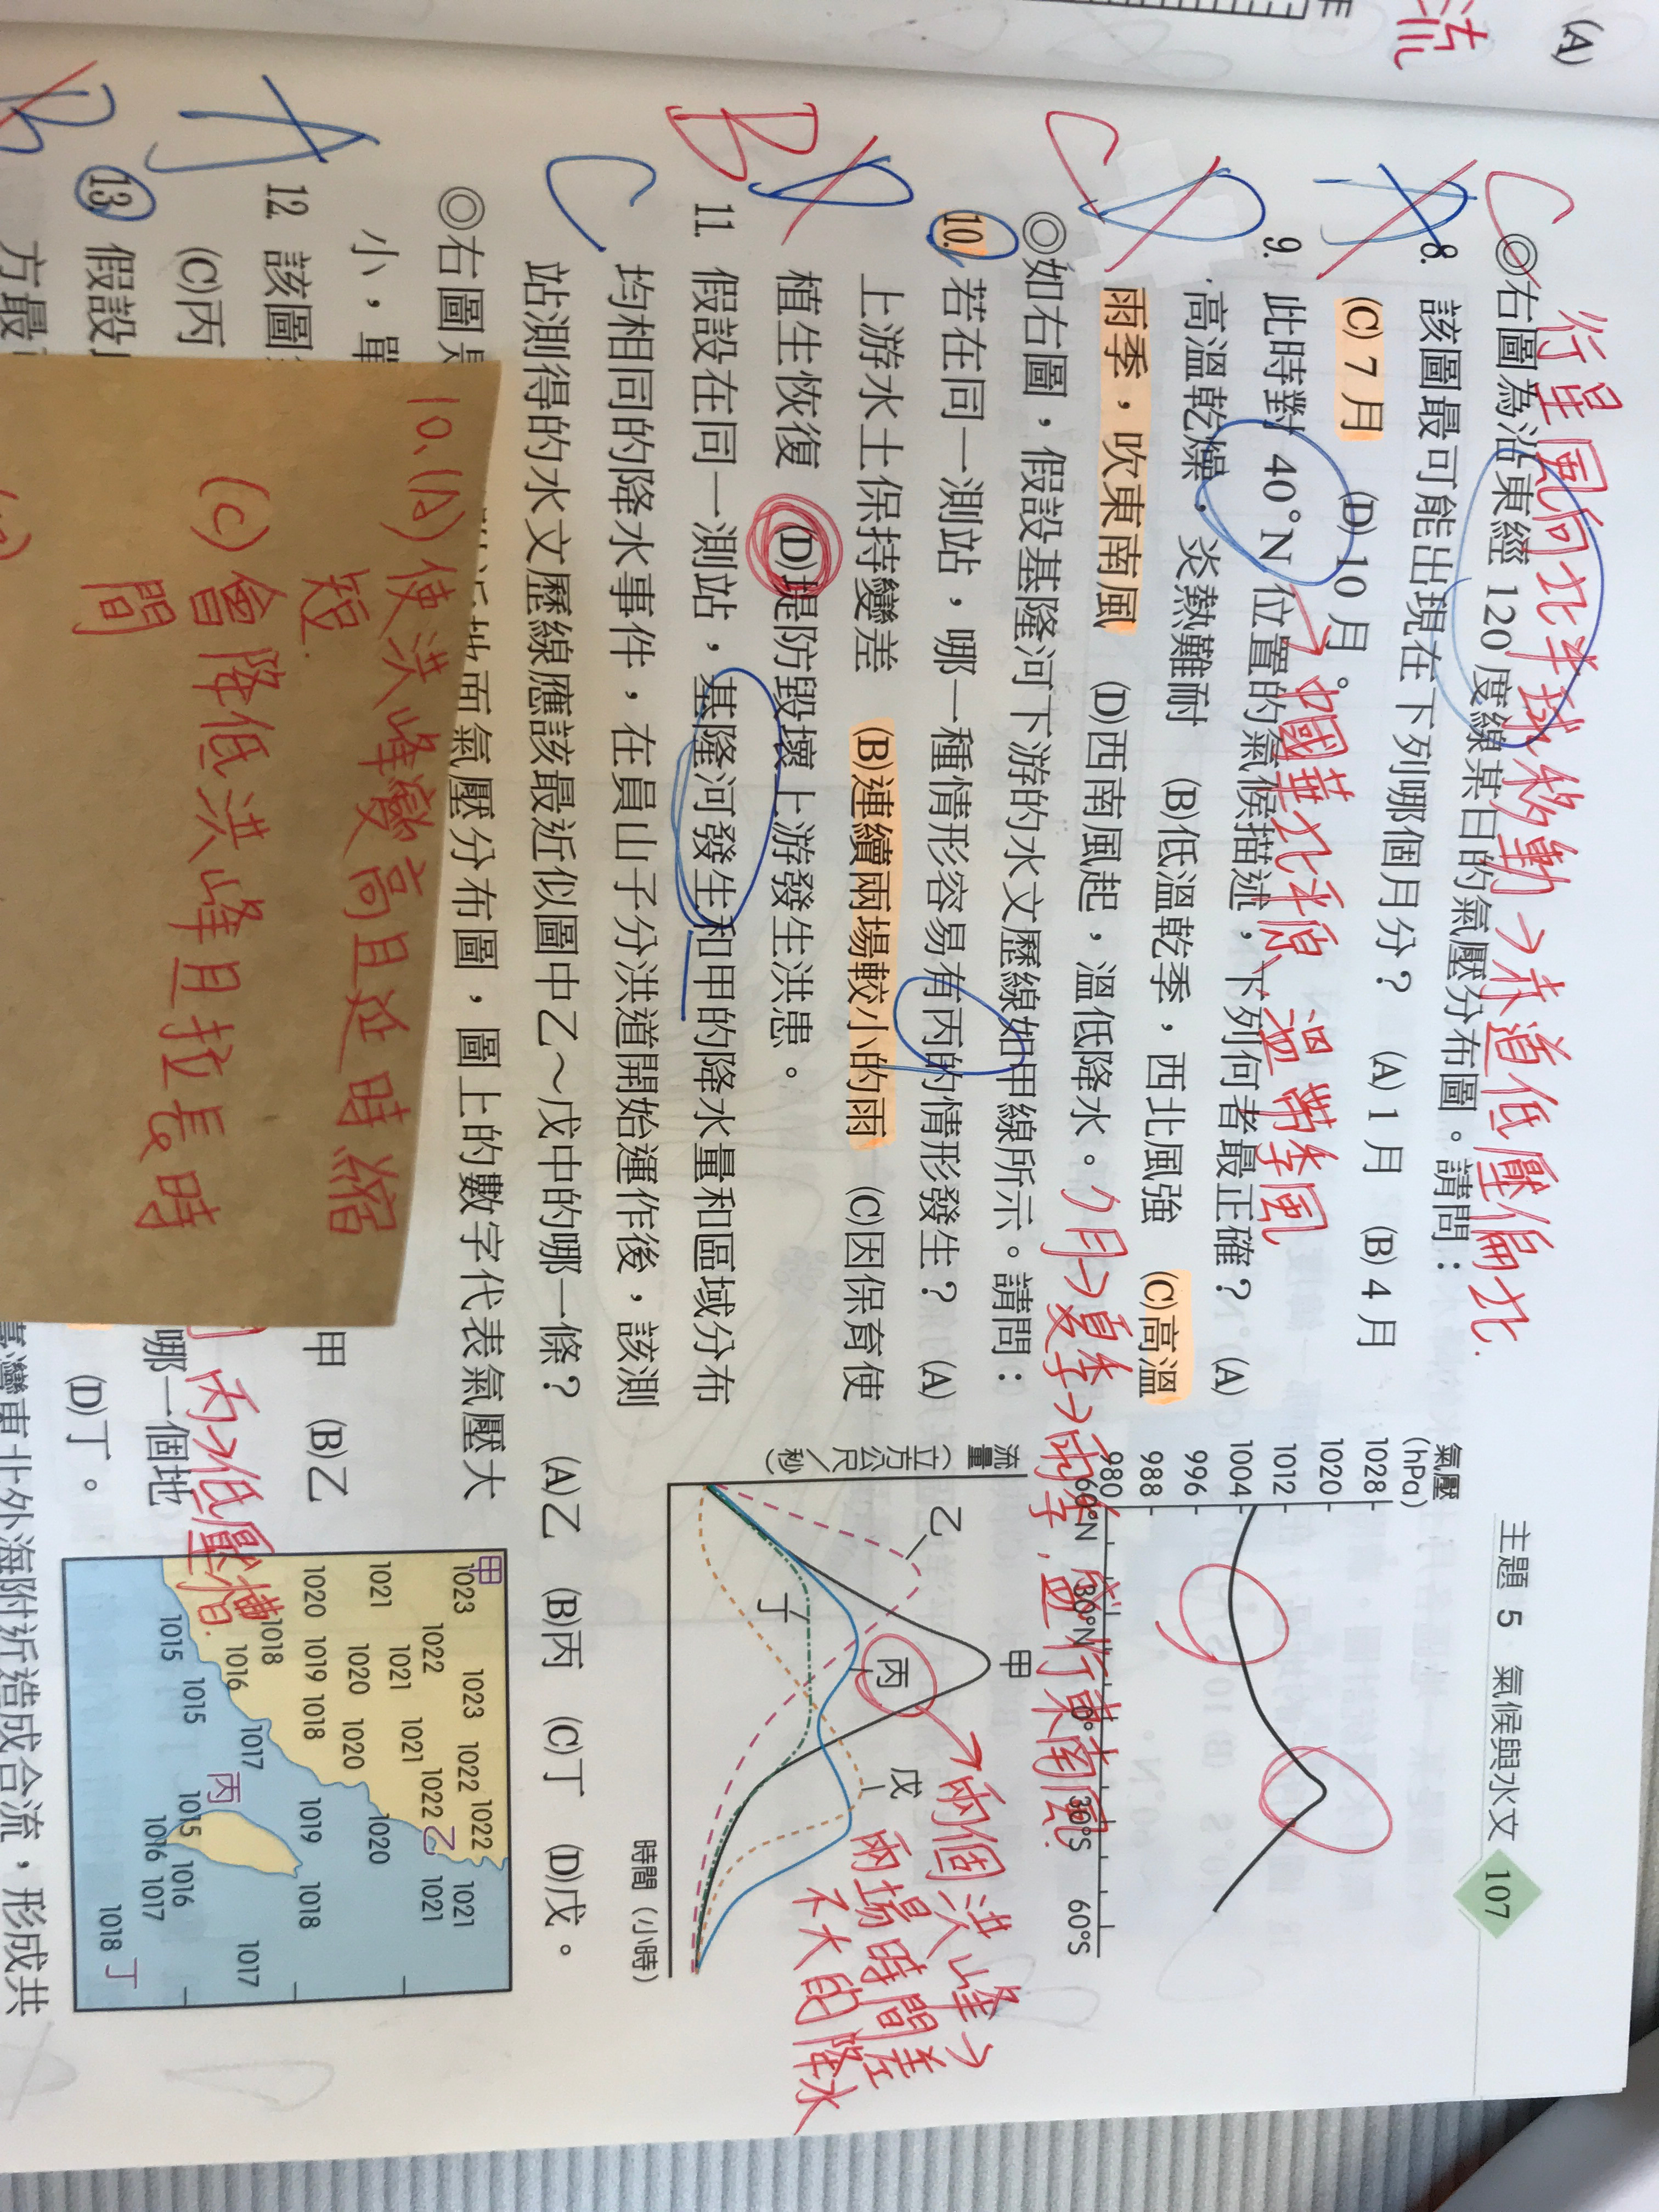 (A)
流
主題 5 氣候與水文 107
行星風向北半球移動→赤道低壓偏北.
◎右圖為沿東經 120 度線某日的氣壓分布圖。請問:
C A
8. 該圖最可能出現在下列哪個月分? (A) 1 月 (B) 4 月
(C) 7 月 (D) 10 月。
→中國華北平原、溫帶季風
C D
9. 此時對 40°N 位置的氣候描述,下列何者最正確? (A)
高溫乾燥,炎熱難耐 (B)低溫乾季,西北風強 (C)高溫
雨季,吹東南風 (D)西南風起,溫低降水。
7月→夏季→雨季,盛行東南風.
氣壓
(hPa)
1028
1020
1012
1004
996
988
980
60°N 30°N 0° 30°S 60°S
◎如右圖,假設基隆河下游的水文歷線如甲線所示。請問:
B D
10. 若在同一測站,哪一種情形容易有丙的情形發生? (A)
上游水土保持變差 (B)連續兩場較小的雨 (C)因保育使
植生恢復 (D)堤防毀壞上游發生洪患。
C
11. 假設在同一測站,基隆河發生和甲的降水量和區域分布
均相同的降水事件,在員山子分洪道開始運作後,該測
站測得的水文歷線應該最近似圖中乙~戊中的哪一條? (A)乙 (B)丙 (C)丁 (D)戊。
流量(立方公尺/秒)
甲
乙
丙
丁
戊
時間(小時)
→兩個洪峰→
兩場時間差
不大的降水
◎右圖是
地面氣壓分布圖,圖上的數字代表氣壓大
小,單
A
12. 該圖
甲 (B)乙
(C)丙
丙→低壓槽.
B
13. 假設
哪一個地
方最
(D)丁。
臺灣東北外海附近造成合流,形成共
10. (A) 使洪峰變高且延時縮
短.
(C) 會降低洪峰且拉長時
間
甲
1023 1023 1022 1022
1022 1021 1022 乙 1021
1021 1021 1021
1020 1020 1020 1020
1020 1019 1018 1019 1018
1018 1016 1017 1017
1015 1015 丙 1015 1016
1016 1017
1018 丁